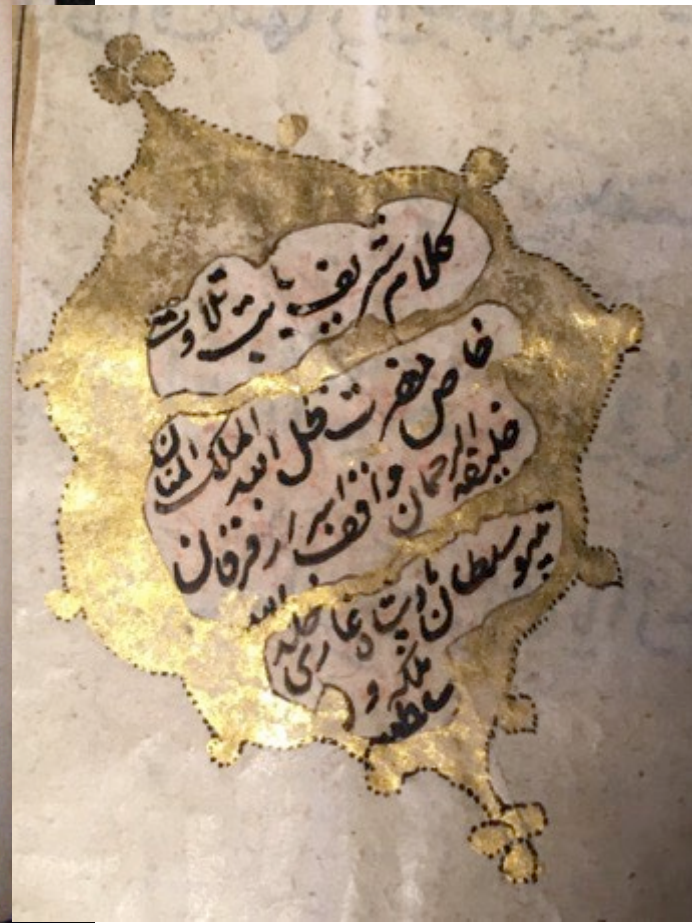 کلام شریف بابت تلاوت
خاص حضرت ظل الله الملک المنان
خلیفة الرحمان واقف اسرار فرقان
تیپو سلطان پادشاه غازی خلد الله
ملکه و سلطنه